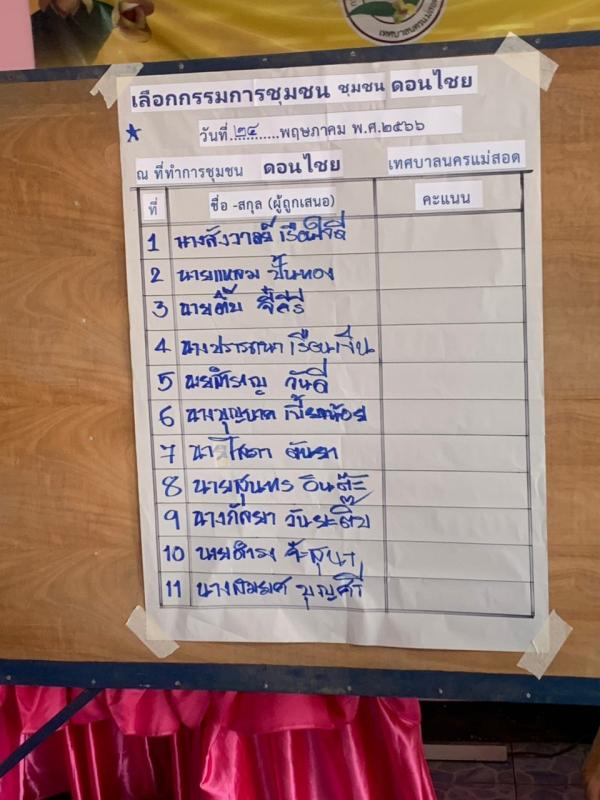 เทศบาลนครแม่สอด
เลือกกรรมการชุมชน ชุมชน ดอนไชย
★ วันที่ ๒๔ พฤษภาคม พ.ศ.๒๕๖๖
ณ ที่ทำการชุมชน ดอนไชย เทศบาลนครแม่สอด
ที่ ชื่อ -สกุล (ผู้ถูกเสนอ) คะแนน
1 นางสังวาลย์
2 นายแหลม ปั้นทอง
3 นายตั๊บ
4 นางปรารถนา
5 วันดี
6 นางบุญมาก
7 นายโสภา
8 นายสุนทร อินต๊ะ
9 นางกัลยา
10 นายดำรง
11 นางสมยศ บุญศรี